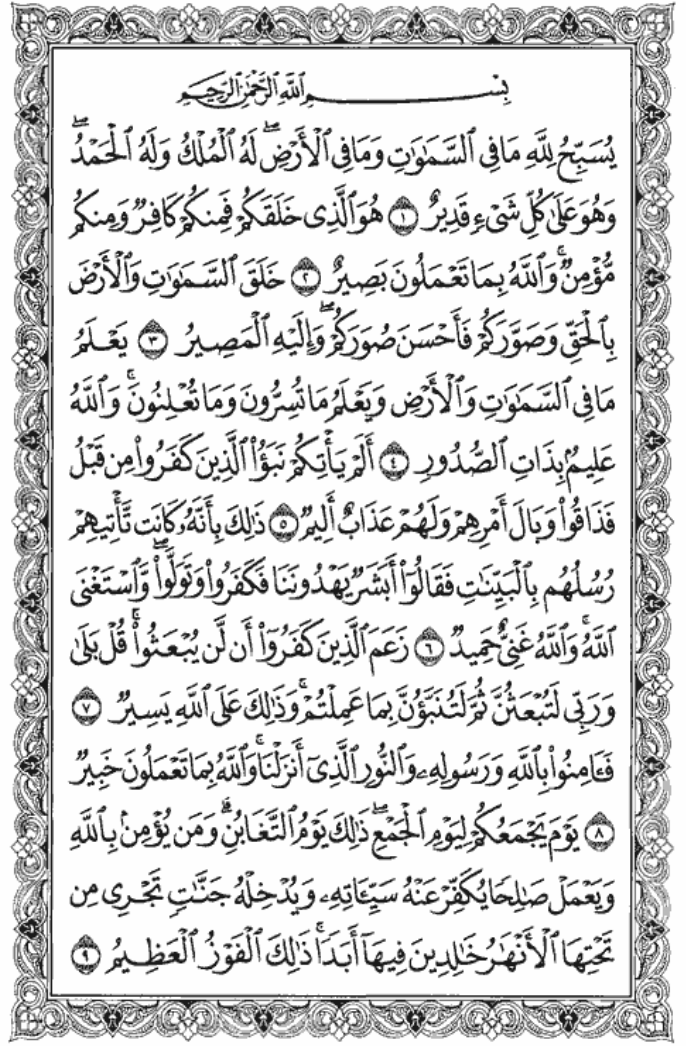 بِسْمِ اللَّهِ الرَّحْمَٰنِ الرَّحِيمِ
يُسَبِّحُ لِلَّهِ مَا فِي السَّمَاوَاتِ وَمَا فِي الْأَرْضِ ۖ لَهُ الْمُلْكُ وَلَهُ الْحَمْدُ ۖ
وَهُوَ عَلَىٰ كُلِّ شَيْءٍ قَدِيرٌ ١ هُوَ الَّذِي خَلَقَكُمْ فَمِنكُمْ كَافِرٌ وَمِنكُم
مُّؤْمِنٌ ۚ وَاللَّهُ بِمَا تَعْمَلُونَ بَصِيرٌ ٢ خَلَقَ السَّمَاوَاتِ وَالْأَرْضَ
بِالْحَقِّ وَصَوَّرَكُمْ فَأَحْسَنَ صُوَرَكُمْ ۖ وَإِلَيْهِ الْمَصِيرُ ٣ يَعْلَمُ
مَا فِي السَّمَاوَاتِ وَالْأَرْضِ وَيَعْلَمُ مَا تُسِرُّونَ وَمَا تُعْلِنُونَ ۚ وَاللَّهُ
عَلِيمٌ بِذَاتِ الصُّدُورِ ٤ أَلَمْ يَأْتِكُمْ نَبَأُ الَّذِينَ كَفَرُوا مِن قَبْلُ
فَذَاقُوا وَبَالَ أَمْرِهِمْ وَلَهُمْ عَذَابٌ أَلِيمٌ ٥ ذَٰلِكَ بِأَنَّهُ كَانَت تَّأْتِيهِمْ
رُسُلُهُم بِالْبَيِّنَاتِ فَقَالُوا أَبَشَرٌ يَهْدُونَنَا فَكَفَرُوا وَتَوَلَّوا ۖ وَّاسْتَغْنَى
اللَّهُ ۚ وَاللَّهُ غَنِيٌّ حَمِيدٌ ٦ زَعَمَ الَّذِينَ كَفَرُوا أَن لَّن يُبْعَثُوا ۚ قُلْ بَلَىٰ
وَرَبِّي لَتُبْعَثُنَّ ثُمَّ لَتُنَبَّؤُنَّ بِمَا عَمِلْتُمْ ۚ وَذَٰلِكَ عَلَى اللَّهِ يَسِيرٌ ٧
فَآمِنُوا بِاللَّهِ وَرَسُولِهِ وَالنُّورِ الَّذِي أَنزَلْنَا ۚ وَاللَّهُ بِمَا تَعْمَلُونَ خَبِيرٌ
٨ يَوْمَ يَجْمَعُكُمْ لِيَوْمِ الْجَمْعِ ۖ ذَٰلِكَ يَوْمُ التَّغَابُنِ ۗ وَمَن يُؤْمِن بِاللَّهِ
وَيَعْمَلْ صَالِحًا يُكَفِّرْ عَنْهُ سَيِّئَاتِهِ وَيُدْخِلْهُ جَنَّاتٍ تَجْرِي مِن
تَحْتِهَا الْأَنْهَارُ خَالِدِينَ فِيهَا أَبَدًا ۚ ذَٰلِكَ الْفَوْزُ الْعَظِيمُ ٩